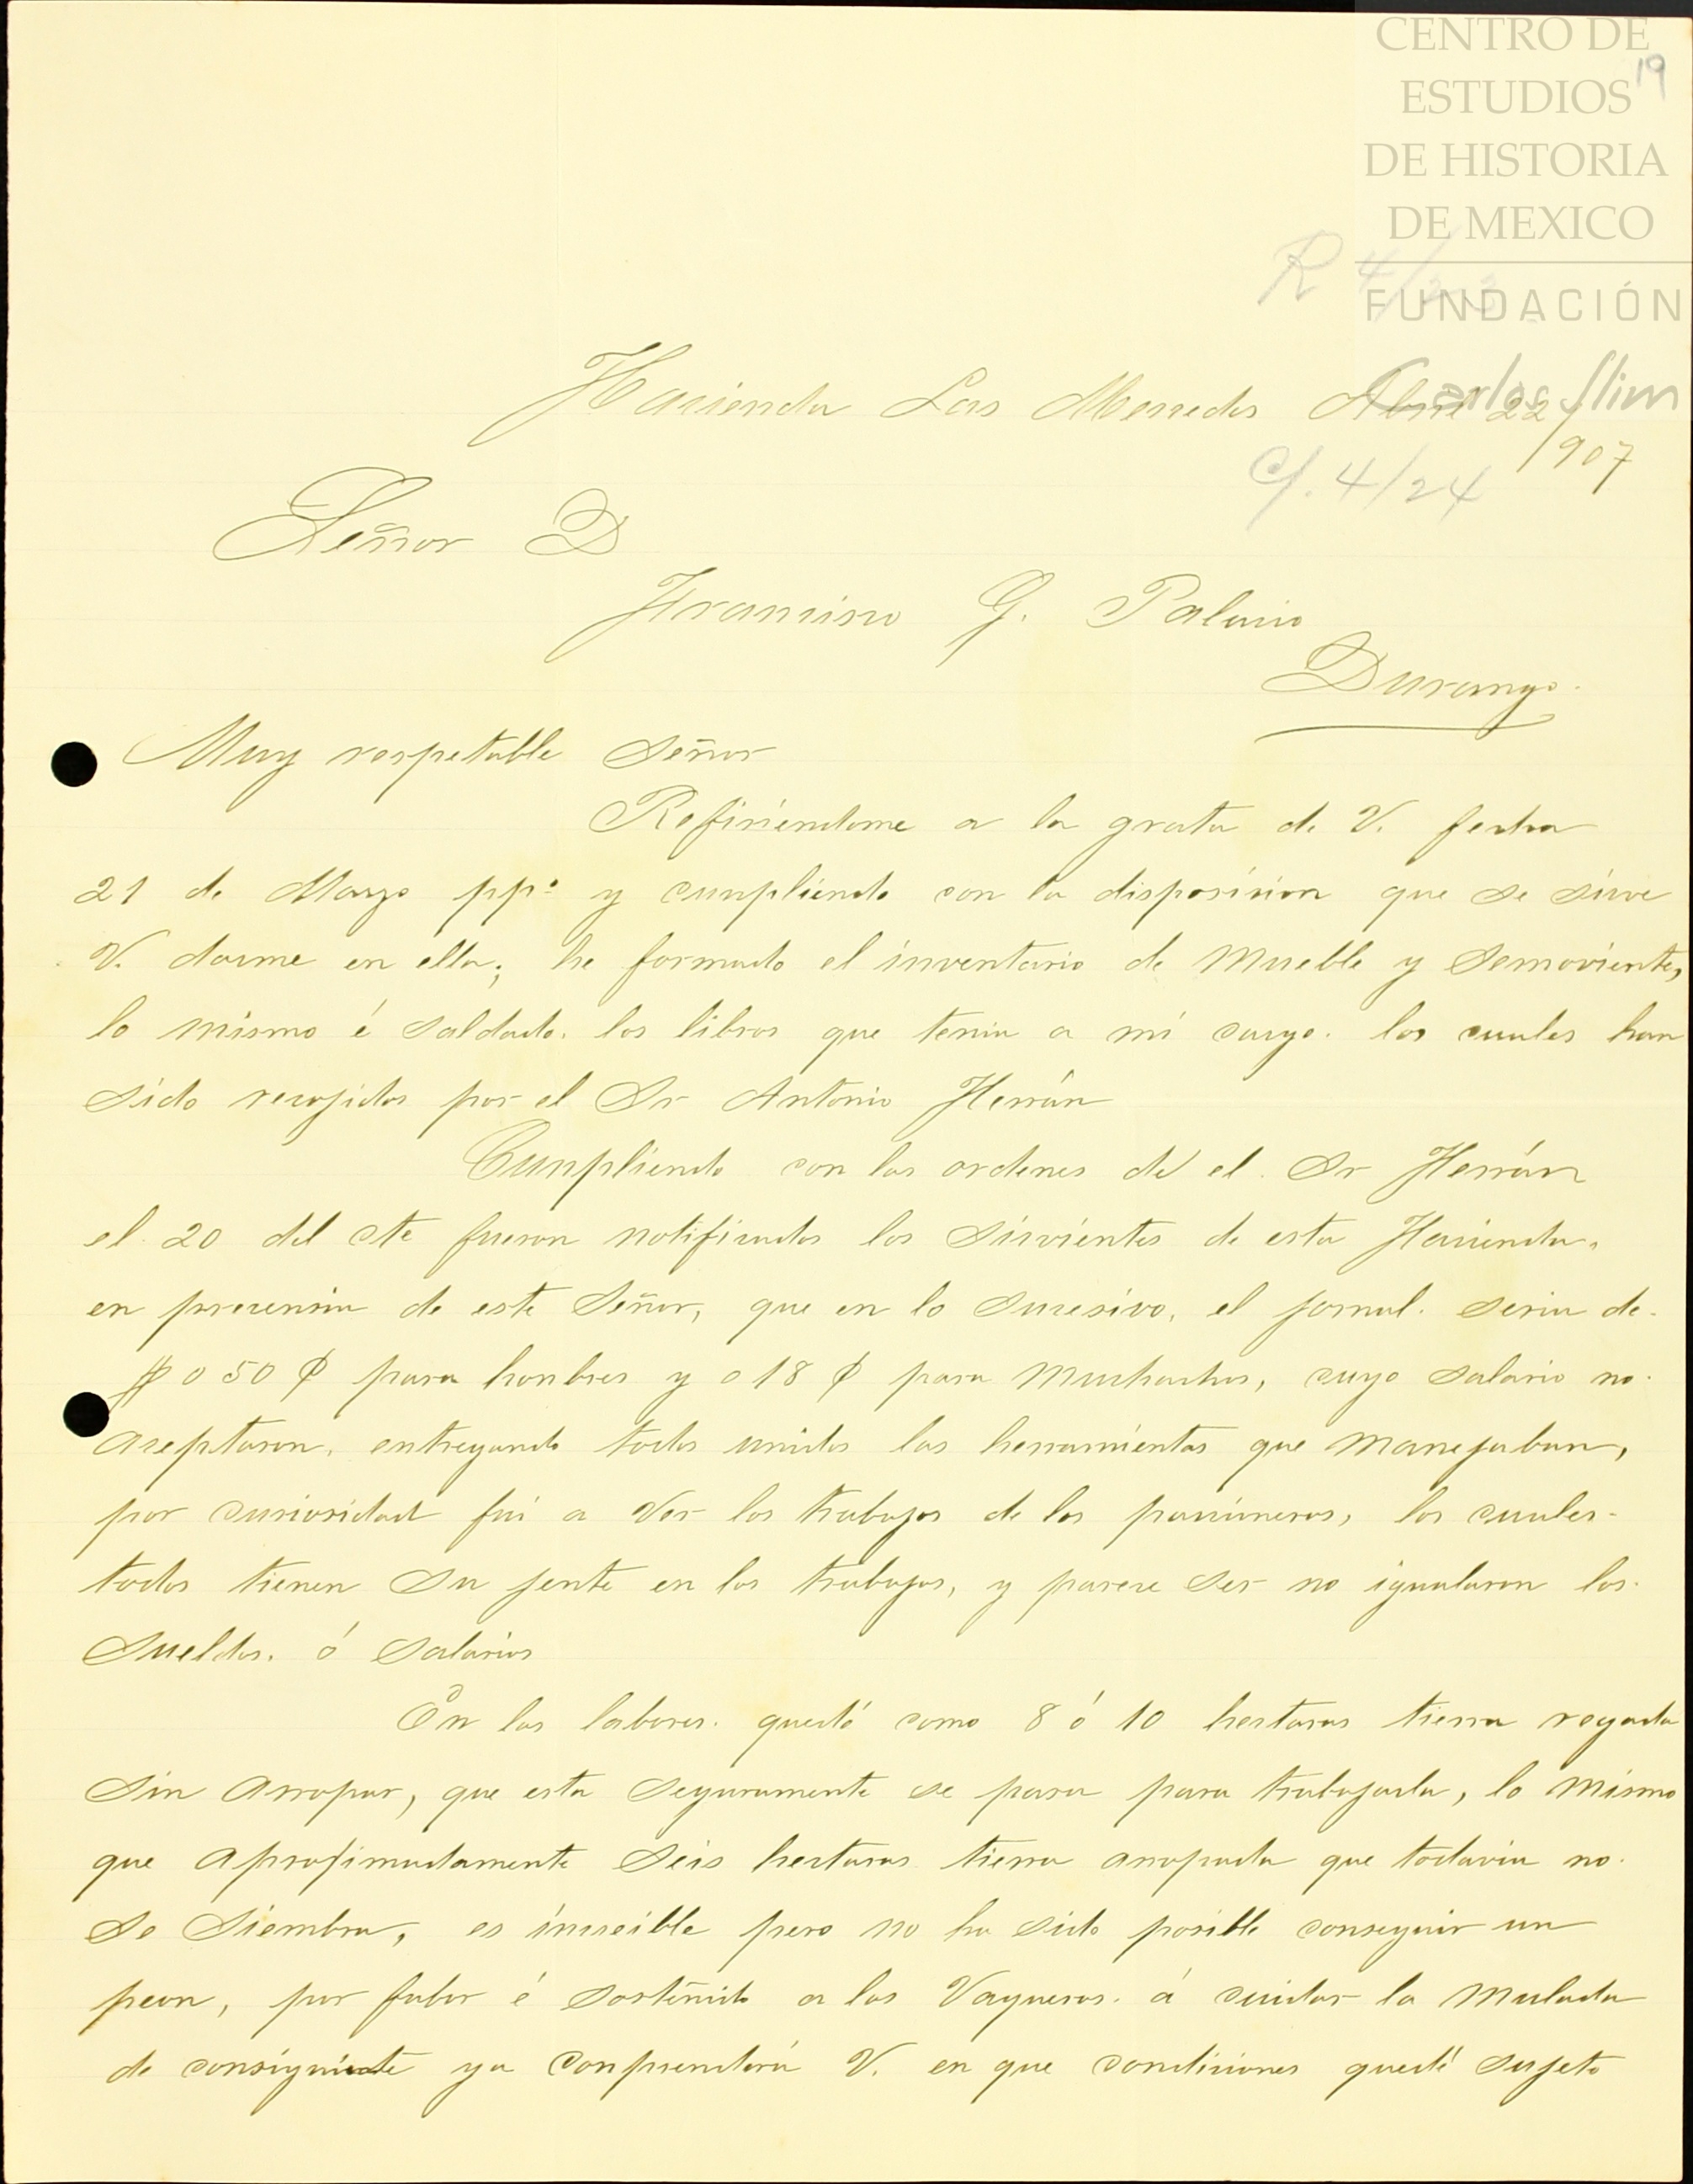 CENTRO DE
ESTUDIOS
19
DE HISTORIA
DE MEXICO
R 4/23
FUNDACIÓN
Carlos Slim
Hacienda Las Mercedes Abril 22/
907
C/. 4/24
Señor D
Francisco G. Palacio
Durango.
Muy respetable Señor
Refiriendome a la grata de V. fecha
21 de Marzo ppº y cunpliendo con la disposicion que se sirve
V. darme en ella; he formado el inventario de Mueble y Semovientes,
lo mismo é saldado. los libros que tenia a mi cargo. los cuales han
sido recojidos por el Sr Antonio Herrán
Cunpliendo con las ordenes de el. Sr Herrán
el. 20 del cte fueron notificados los Sirvientes de esta Hacienda,
en precencia de este Señor, que en lo sucesivo, el jornal. seria de-
$ 0 50 ¢ para honbres y 0 18 ¢ para Muchachos, cuyo salario no.
aseptaron, entregando todos unidos las herramientas que manejaban,
por curiosidad fui a ver los trabajos de los parcioneros, los cuales-
todos tienen su jente en los trabajos, y parece ser no igualaron los.
Sueldos. ó Salarios
En las labores. quedó como 8 ó 10 hectaras tierra regada
sin arropar, que esta seguramente se pasa para trabajarla, lo mismo
que aprojimadamente seis hectaras tierra arropada que todavia no.
se Siembra, es increible pero no ha sido posible conseguir un
peon, por fabor é sosteñido a los Vaqueros. á cuidar la Mulada
de consiguiente ya conprenderá V. en que condiciones quedé sujeto